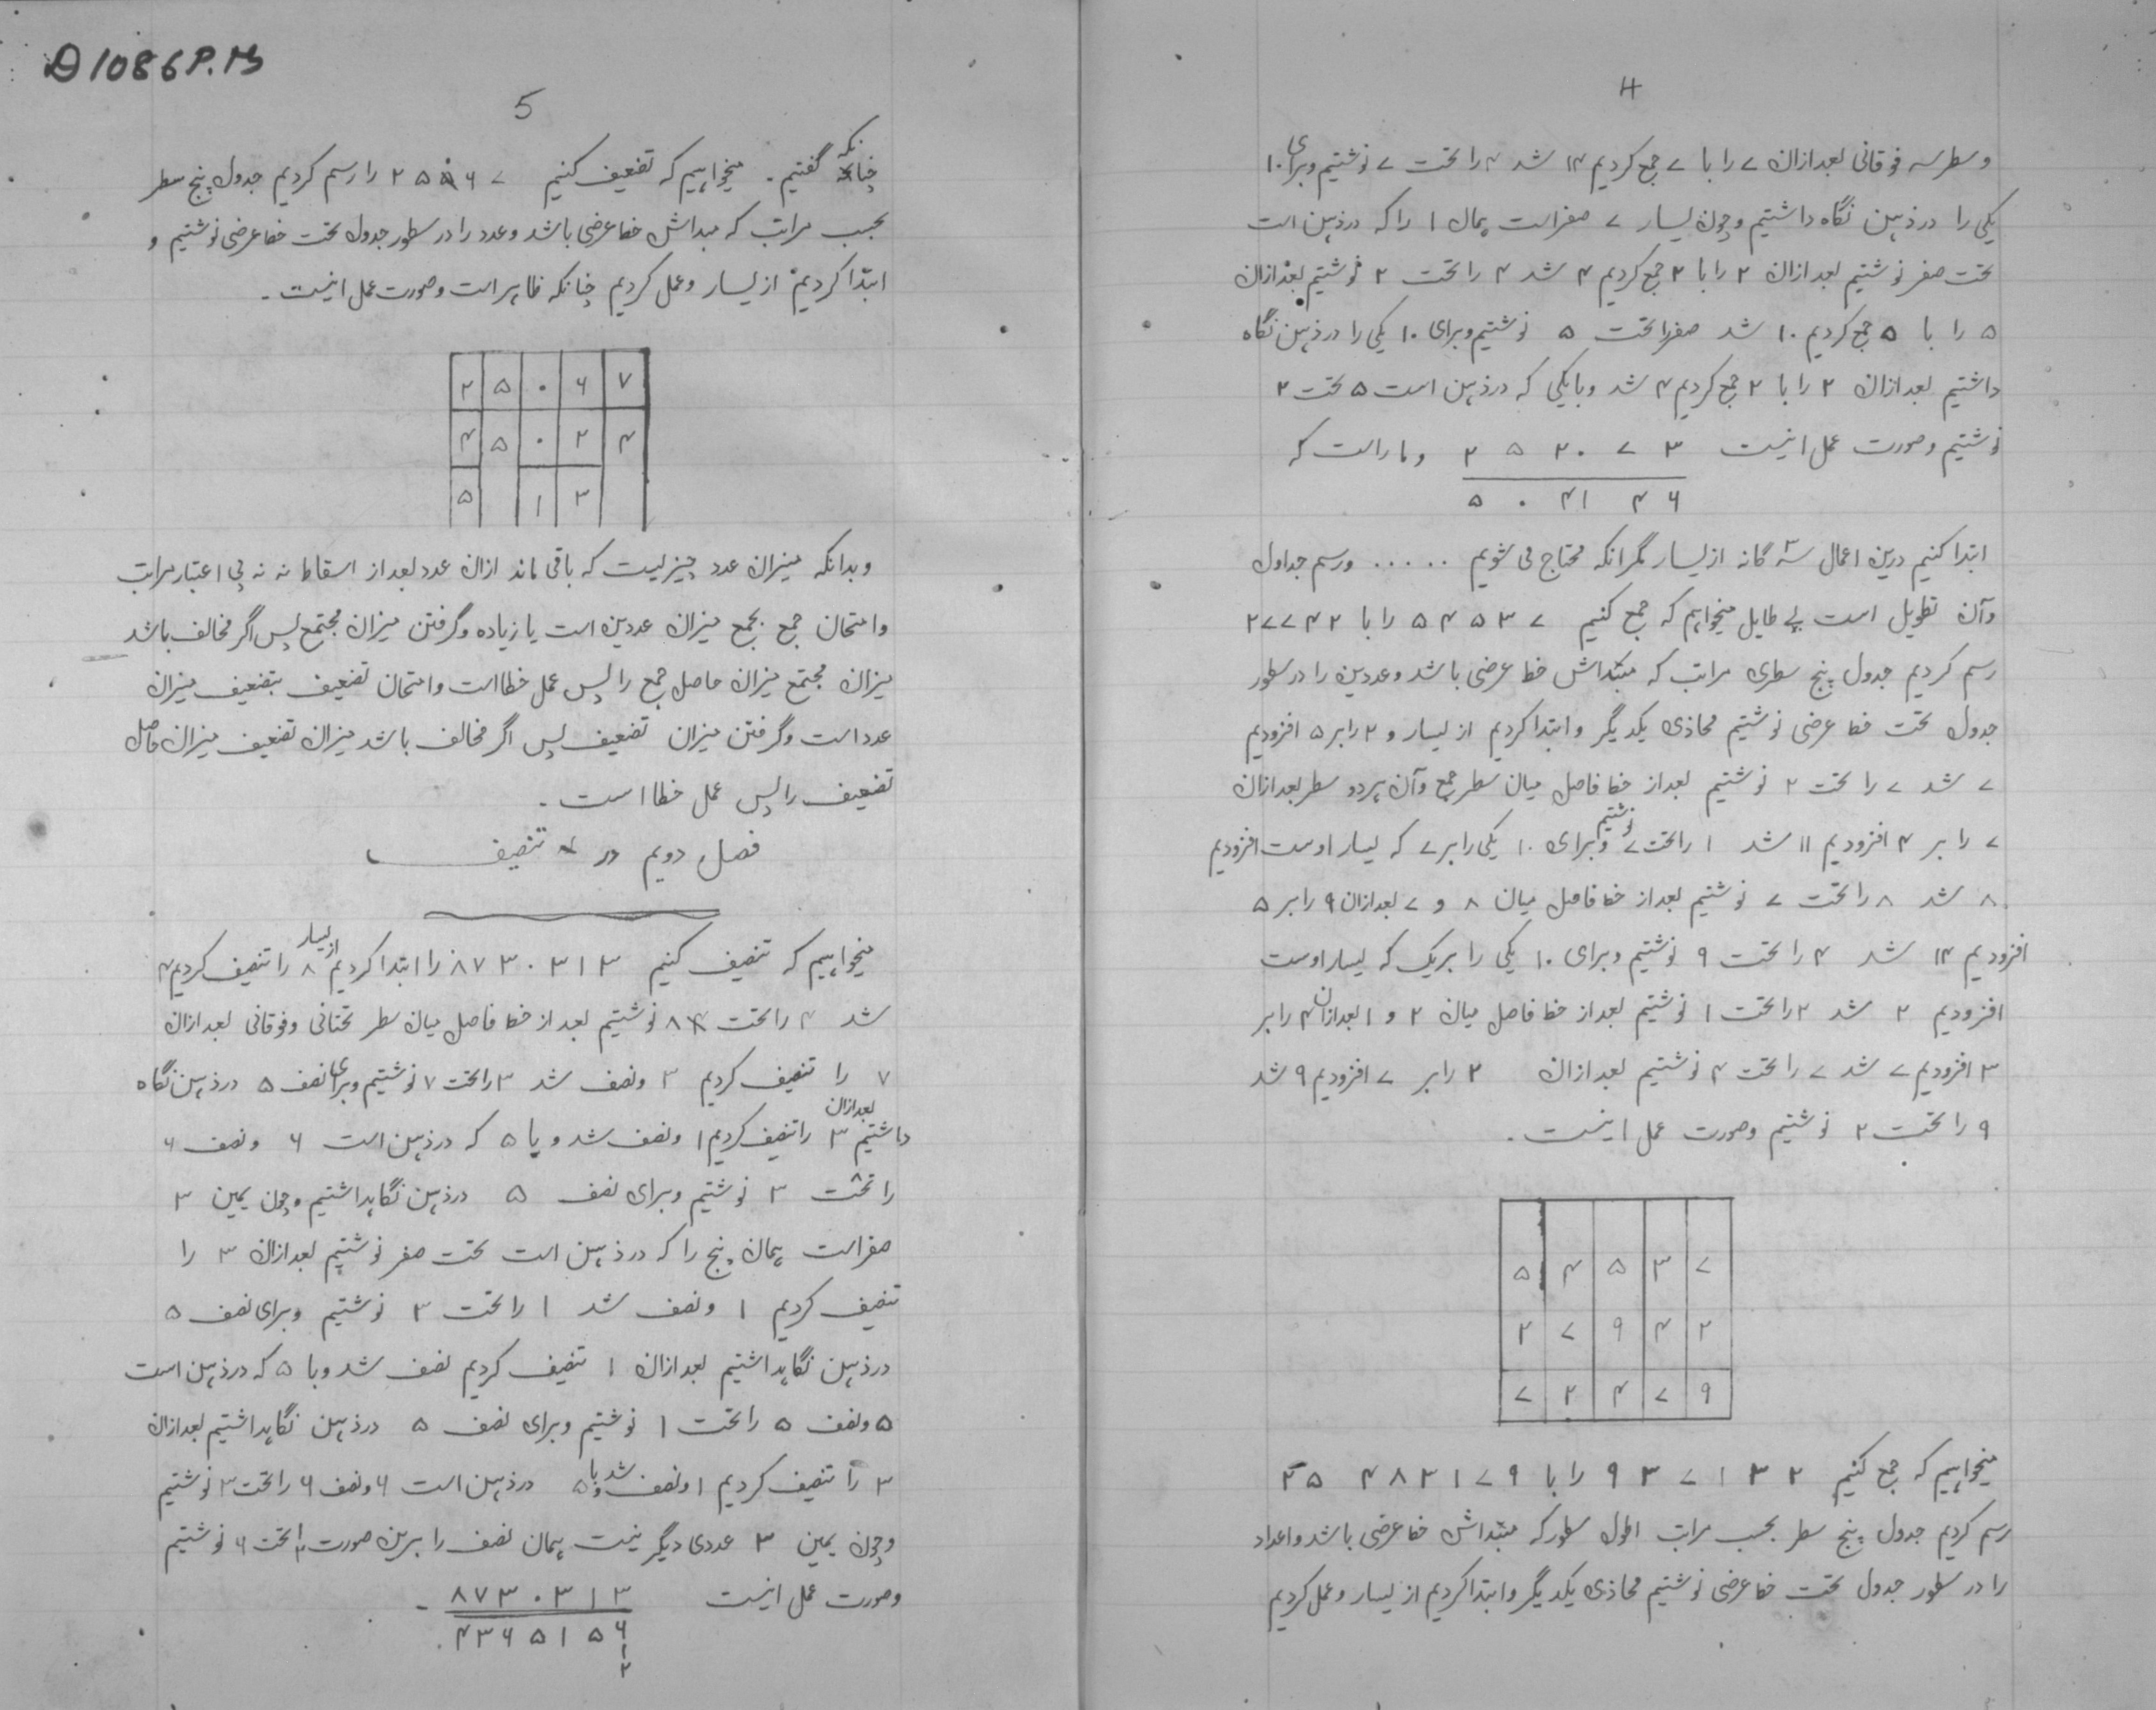 4
وسطرسه فوقانی بعد ازان ۷ را با ۷ جمع کردیم ۱۴ شد ۴ را تحت ۷ نوشتیم و برای ۱۰
یکی را در ذهن نگاه داشتیم و چون یسار ۷ صفر است همان ۱ را که در ذهن است
تحت صفر نوشتیم بعد ازان ۲ را با ۲ جمع کردیم ۴ شد ۴ را تحت ۲ نوشتیم بعد ازان
۵ را با ۵ جمع کردیم ۱۰ شد صفر را تحت ۵ نوشتیم و برای ۱۰ یکی را در ذهن نگاه
داشتیم بعد ازان ۲ را با ۲ جمع کردیم ۴ شد و با یکی که در ذهن است ۵ تحت ۲
نوشتیم و صورت عمل اینست ۲ ۵ ۲ ۰ ۷ ۳ و ما راست که
۵ ۰ ۴ ۱ ۴ ۶
ابتدا کنیم درین اعمال سه گانه از یسار مگر آنکه محتاج می شویم ..... و رسم جداول
و آن تطویل است بی طایل میخواهیم که جمع کنیم ۵ ۴ ۵ ۳ ۷ را با ۲ ۷ ۷ ۴ ۲
رسم کردیم جدول پنج سطری مراتب که مبتداش خط عرضی باشد و عددین را در سطور
جدول تحت خط عرضی نوشتیم محاذی یکدیگر و ابتدا کردیم از یسار و ۲ را بر ۵ افزودیم
۷ شد ۷ را تحت ۲ نوشتیم بعد از خط فاصل میان سطر جمع و آن هر دو سطر بعد ازان
۷ را بر ۴ افزودیم ۱۱ شد ۱ را تحت ۷ نوشتیم و برای ۱۰ یکی را بر ۷ که یسار اوست افزودیم
۸ شد ۸ را تحت ۷ نوشتیم بعد از خط فاصل میان ۸ و ۷ بعد ازان ۹ را بر ۵
افزودیم ۱۴ شد ۴ را تحت ۹ نوشتیم و برای ۱۰ یکی را بر یک که یسار اوست
افزودیم ۲ شد ۲ را تحت ۱ نوشتیم بعد از خط فاصل میان ۲ و ۱ بعد ازان ۴ را بر
۳ افزودیم ۷ شد ۷ را تحت ۴ نوشتیم بعد ازان ۲ را بر ۷ افزودیم ۹ شد
۹ را تحت ۲ نوشتیم و صورت عمل اینست .
۵ ۴ ۵ ۳ ۷
۲ ۷ ۹ ۴ ۲
۷ ۲ ۴ ۷ ۹
میخواهیم که جمع کنیم ۹ ۳ ۷ ۱ ۳ ۲ را با ۲۵ ۴ ۸ ۳ ۱ ۷ ۹
رسم کردیم جدول پنج سطر بحسب مراتب اطول سطور که مبتداش خط عرضی باشد و اعداد
را در سطور جدول تحت خط عرضی نوشتیم محاذی یکدیگر و ابتدا کردیم از یسار و عمل کردیم
D1086P.M
5
چنانکه گفتیم . میخواهیم که تضعیف کنیم ۲ ۵ ۰ ۶ ۷ را رسم کردیم جدول پنج سطر
بحسب مراتب که مبداش خط عرضی باشد و عدد را در سطور جدول تحت خط عرضی نوشتیم و
ابتدا کردیم از یسار و عمل کردیم چنانکه ظاهر است و صورت عمل اینست .
۲ ۵ ۰ ۶ ۷
۴ ۵ ۰ ۲ ۴
۵ ۱ ۳
و بدانکه میزان عدد چیزیست که باقی ماند ازان عدد بعد از اسقاط نه نه بی اعتبار مراتب
و امتحان جمع بجمع میزان عددین است یا زیاده و گرفتن میزان مجتمع پس اگر مخالف باشد
میزان مجتمع میزان حاصل جمع را پس عمل خطا است و امتحان تضعیف بتضعیف میزان
عدد است و گرفتن میزان تضعیف پس اگر مخالف باشد میزان تضعیف میزان حاصل
تضعیف را پس عمل خطا است .
فصل دویم در تنصیف
میخواهیم که تنصیف کنیم ۸۷۳۰۳۱۳ را ابتدا کردیم از یسار ۸ را تنصیف کردیم ۴
شد ۴ را تحت ۸ نوشتیم بعد از خط فاصل میان سطر تحتانی و فوقانی بعد ازان
۷ را تنصیف کردیم ۳ و نصف شد ۳ را تحت ۷ نوشتیم و برای نصف ۵ در ذهن نگاه
داشتیم بعد ازان ۳ را تنصیف کردیم ۱ و نصف شد و با ۵ که در ذهن است ۶ و نصف ۶
را تحت ۳ نوشتیم و برای نصف ۵ در ذهن نگاهداشتیم و چون یمین ۳
صفر است همان پنج را که در ذهن است تحت صفر نوشتیم بعد ازان ۳ را
تنصیف کردیم ۱ و نصف شد ۱ را تحت ۳ نوشتیم و برای نصف ۵
در ذهن نگاهداشتیم بعد ازان ۱ تنصیف کردیم نصف شد و با ۵ که در ذهن است
۵ و نصف ۵ را تحت ۱ نوشتیم و برای نصف ۵ در ذهن نگاهداشتیم بعد ازان
۳ را تنصیف کردیم ۱ و نصف شد و با ۵ در ذهن است ۶ و نصف ۶ را تحت ۳ نوشتیم
و چون یمین ۳ عددی دیگر نیست همان نصف را برین صورت ۱/۲ تحت ۶ نوشتیم
و صورت عمل اینست ۸۷۳۰۳۱۳
۴۳۶۵۱۵۶
۱
۲